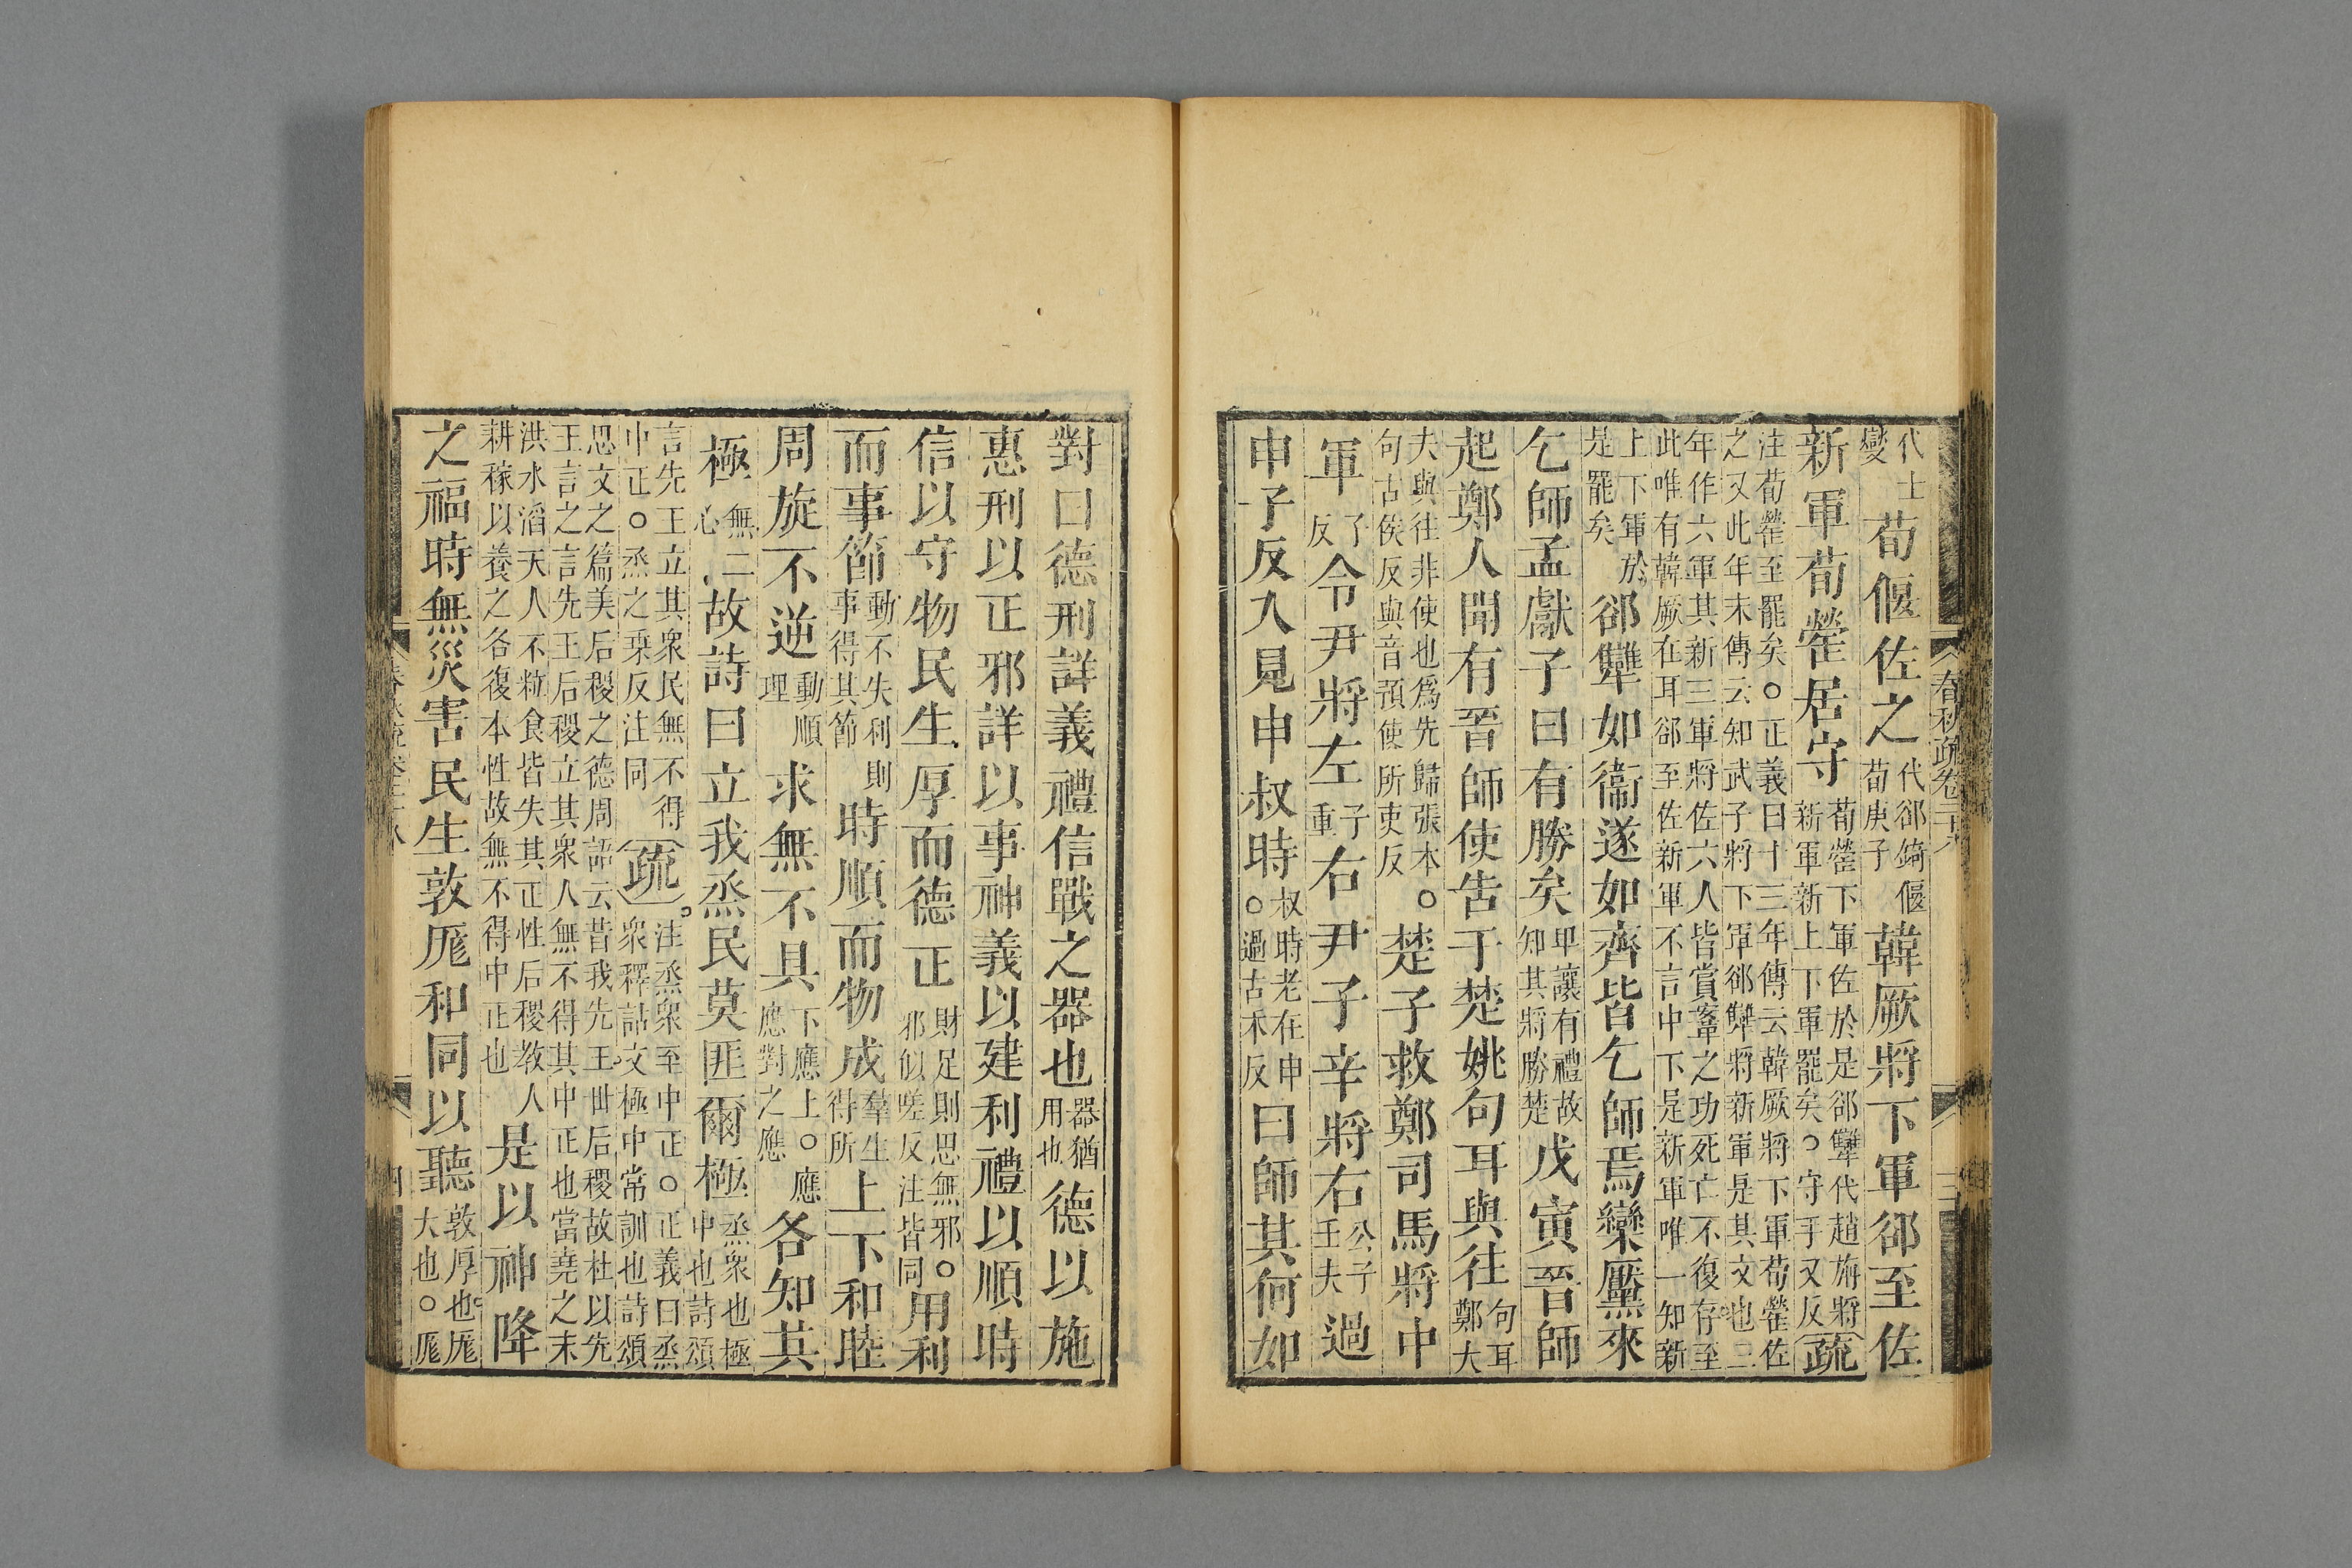 代士
燮
荀偃佐之
代郤錡偃
荀庚子
韓厥將下軍郤至佐
新軍荀罃居守
荀罃下軍佐於是郤犨代趙旃將
新軍新上下軍罷矣○守手又反
疏
注荀罃至罷矣○正義曰十三年傳云韓厥將下軍荀罃佐
之又此年末傳云知武子將下軍郤犨將新軍是其文也二
年作六軍其新三軍將佐六人皆賞鞌之功死亡不復存至
此唯有韓厥在耳郤至佐新軍不言中下是新軍唯一知新
上下軍於
是罷矣
郤犨如衞遂如齊皆乞師焉欒黶來
乞師孟獻子曰有勝矣
卑讓有禮故
知其將勝楚
戊寅晉師
起鄭人聞有晉師使告于楚姚句耳與往
句耳
鄭大
夫與往非使也爲先歸張本○
句古侯反與音預使所吏反
楚子救鄭司馬將中
軍
子
反
令尹將左
子
重
右尹子辛將右
公子
壬夫
過
申子反入見申叔時
叔時老在申
○過古禾反
曰師其何如
春秋疏卷二十八
對曰德刑詳義禮信戰之器也
器猶
用也
德以施
惠刑以正邪詳以事神義以建利禮以順時
信以守物民生厚而德正
財足則思無邪○
邪似嗟反注皆同
用利
而事節
動不失利則
事得其節
時順而物成
羣生
得所
上下和睦
周旋不逆
動順
理
求無不具
下應上○應
應對之應
各知其
極
無二
心
故詩曰立我烝民莫匪爾極
烝衆也極
中也詩頌
言先王立其衆民無不得
中正○烝之乘反注同
疏
注烝衆至中正○正義曰烝
衆釋詁文極中常訓也詩頌
思文之篇美后稷之德周語云昔我先王世后稷故杜以先
王言之言先王后稷立其衆人無不得其中正也當堯之末
洪水滔天人不粒食皆失其正性后稷教人
耕稼以養之各復本性故無不得中正也
是以神降
之福時無災害民生敦厖和同以聽
敦厚也厖
大也○厖